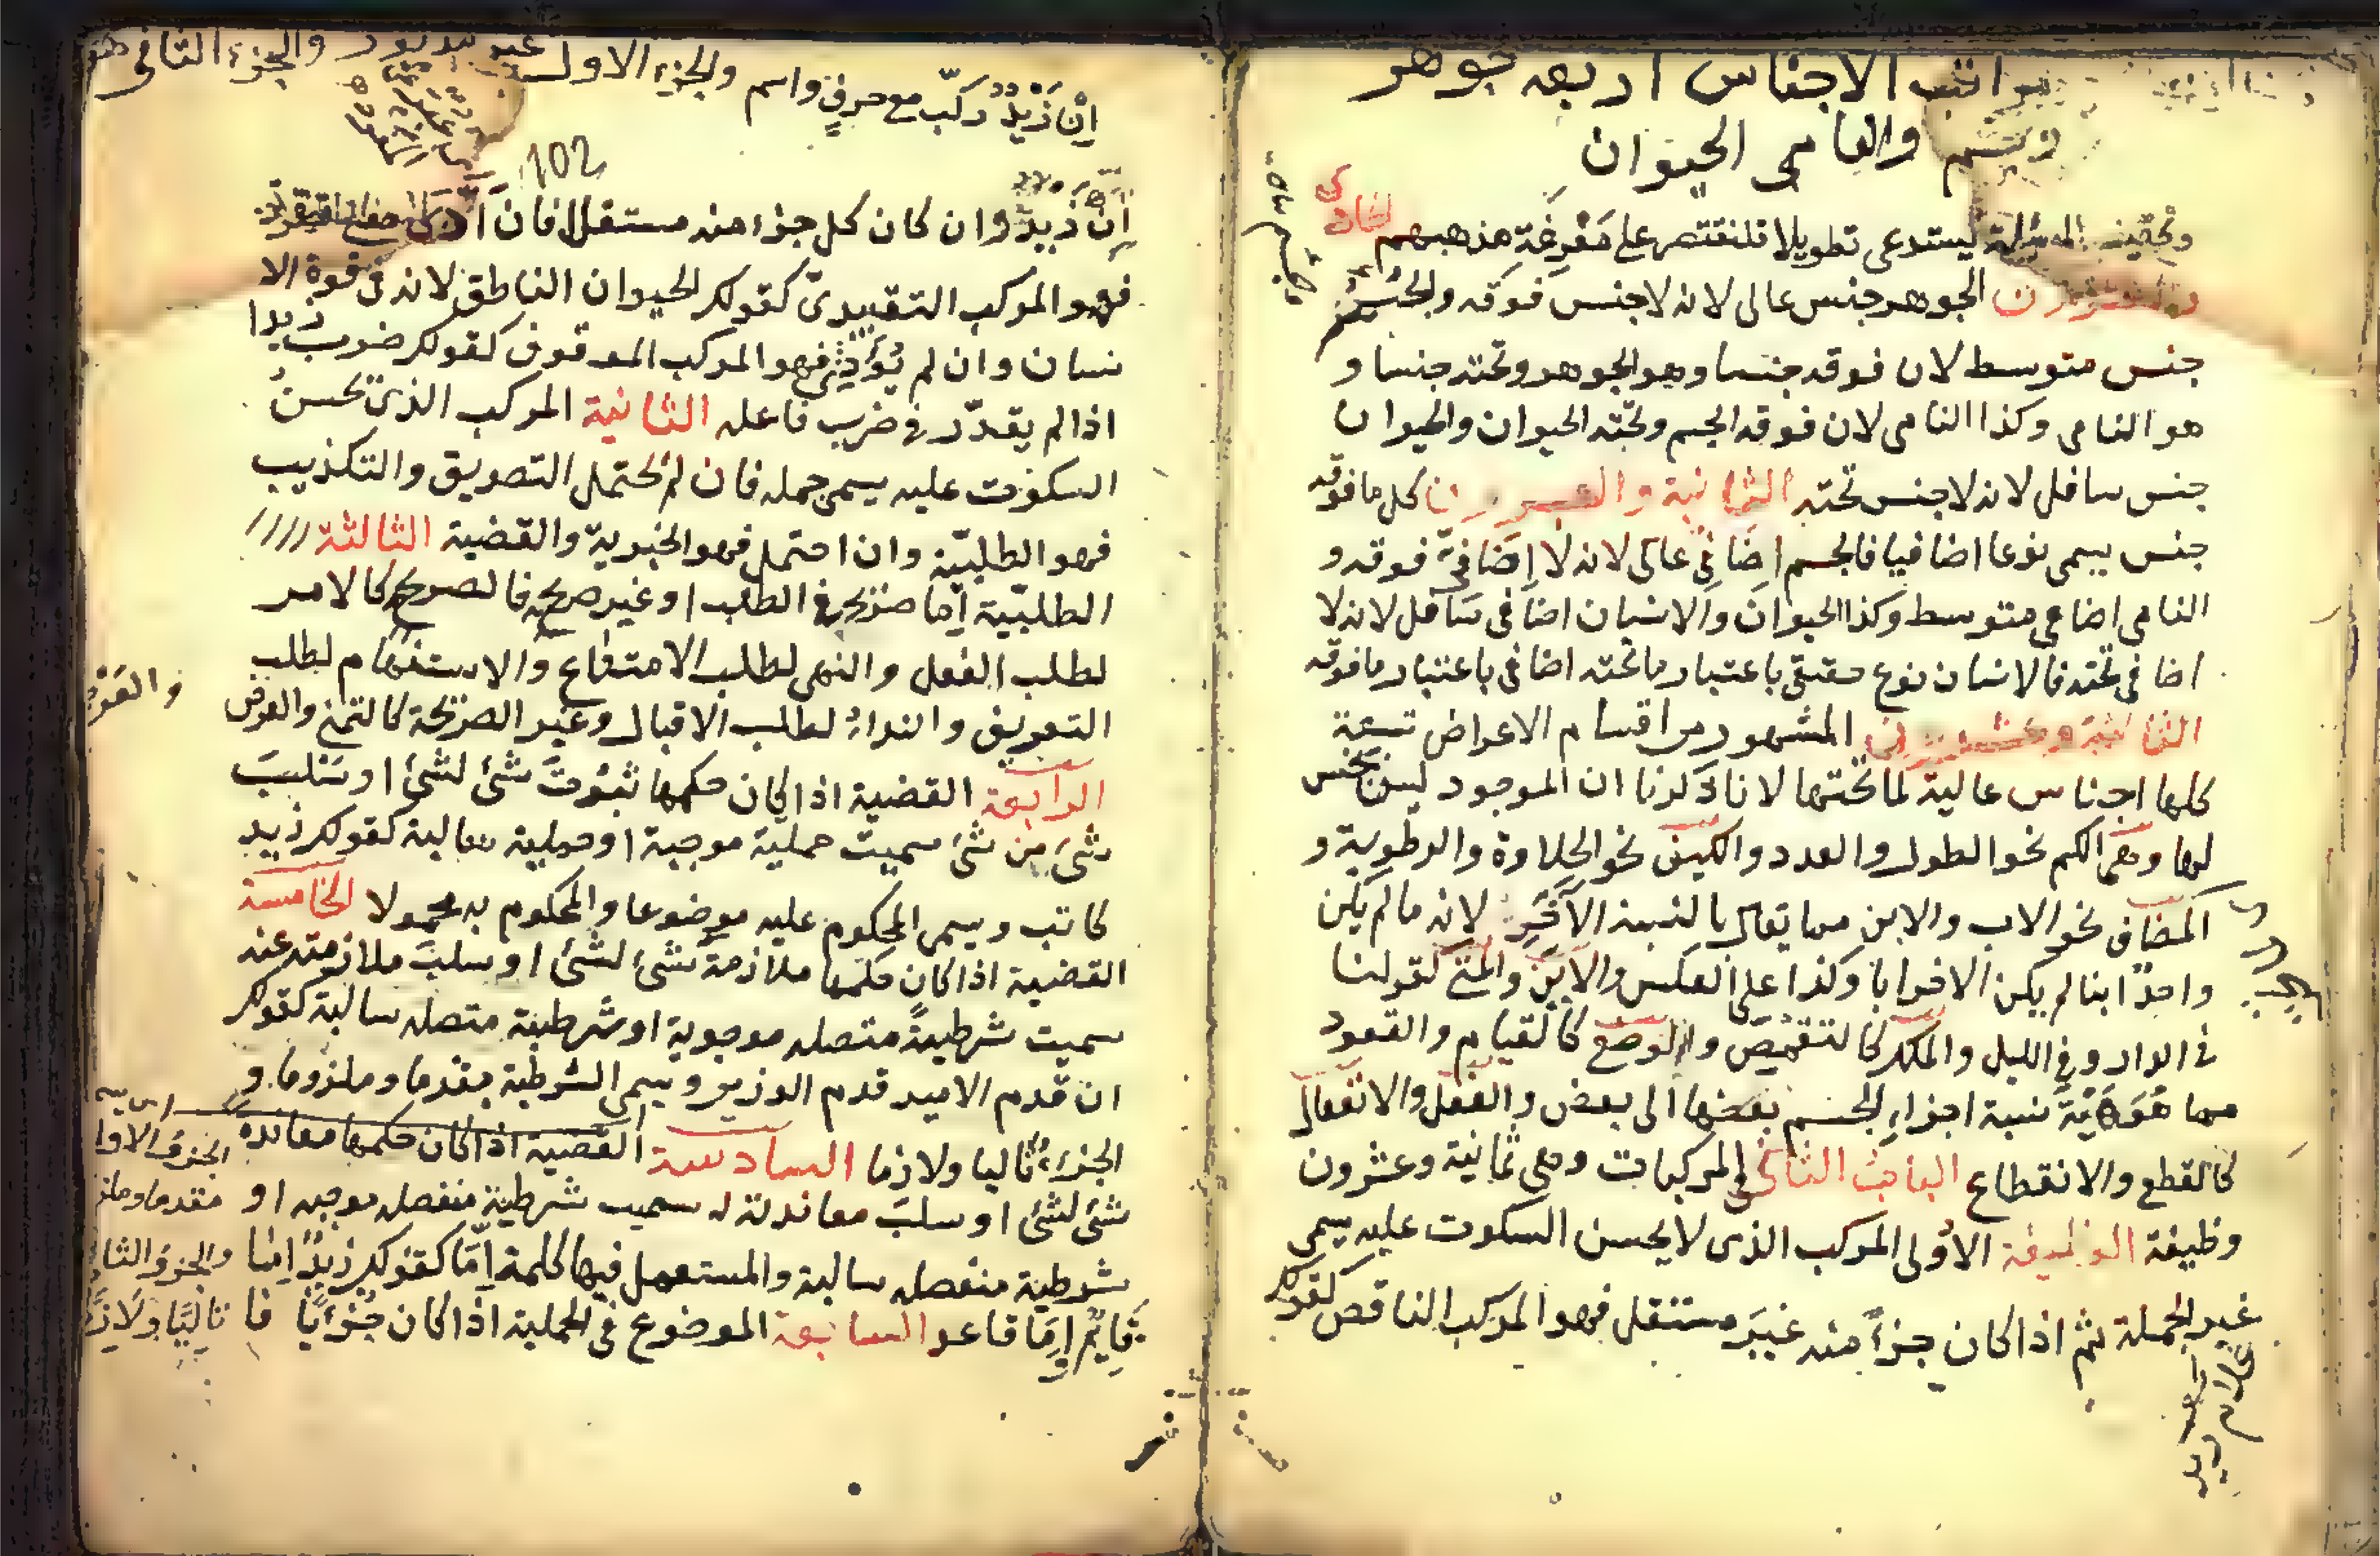 الاجناس اربعه جوهر
والنامى الحيوان
المسئلة ليستدعى تطويلا فلنقتصر على معرفة مذهبهم
الجوهر جنس عالى لانه لا جنس فوقه والجسم
جنس متوسط لان فوقه جنسا وهو الجوهر وتحته جنسا و
هو النامى وكذا النامى لان فوقه الجسم وتحته الحيوان والحيوان
جنس سافل لانه لا جنس تحته الثانية والعشرون كل ما فوقه
جنس يسمى نوعا اضافيا فالجسم اضافى عالى لانه لا اضافى فوقه و
النامى اضافى متوسط وكذا الحيوان والانسان اضافى سافل لانه لا
اضافى تحته فالانسان نوع حقيقى باعتبار ما تحته اضافى باعتبار ما فوقه
الثالثة وعشرون المشهور من اقسام الاعراض تسعة
كلها اجناس عالية لما تحتها لانا ذكرنا ان الموجود ليس بجنس
لها وهى الكم نحو الطول والعدد والكيف نحو الحلاوة والرطوبة و
المضاف نحو الاب والابن مما يقال بالنسبة الآخر لانه ما لم يكن
واحدٌ ابنا لم يكن الاخر ابا وكذا على العكس والاين والمتى كقولنا
فى الدار وفى الليل والملك كالتقمص والوضع كالقيام والقعود
مما هو هيئة نسبة اجزاء الجسم بعضها الى بعض والفعل والانفعال
كالقطع والانقطاع الباب الثانى فى المركبات وهى ثمانية وعشرون
وظيفة الوظيفة الأولى المركب الذى لا يحسن السكوت عليه يسمى
غير الجملة ثم اذا كان جزءٌ منه غيرَ مستقل فهو المركب الناقص كقولك
غلام زيد
اِنّ زَيْدٌ ركّب مع حرف واسم والجزء الاول
والجزء الثانى هو
102
اِنّ زيدٌ وان كان كل جزء منه مستقلا فان
فهو المركب التقييدىّ كقولك الحيوان الناطق لانه فى قوة الا
نسان وان لم يُؤَدِّ فهو المركب الموقوف كقولك ضرب زيدا
اذا لم يقدّر فى ضرب فاعله الثانية المركب الذى تحسن
السكوت عليه يسمى جمله فان لم تحتمل التصديق والتكذيب
فهو الطلبيّة وان احتمل فهو الخبرية والقضية الثالثة
الطلبيّة اِمّا صريح فى الطلب او غير صريح فالصريح كالامر
لطلب الفعل والنهى لطلب الامتناع والاستفهام لطلب
التعريف والنداءُ لطلب الاقبال وغير الصريحة كالتمنى والعرض
الرابعة القضية اذا كان حكمها ثبوتَ شئ لشئ او سَلبَ
شئ من شئ سميت حمليّة موجبة او حملية سالبة كقولك زيد
كاتب ويسمى المحكوم عليه موضوعا والمحكوم به محمولا الخامسة
القضية اذا كان حكمها ملازمة شئ لشئ او سلبَ ملازمته عنه
سميت شرطيةً متصله موجوبة او شرطية متصله سالبة كقولك
ان قدم الامير قدم الوزير ويسمى الشرطية مقدما وملزوما و
الجزءُ تاليا ولازما السادسة القضية اذا كان حكمها معاندة
شئ لشئ او سلبَ معاندته له سميت شرطية منفصله موجبه او
شرطية منفصله سالبة والمستعمل فيها كلمة اِمّا كقولك زيدٌ اِمّا
قايمٌ واِمّا قاعد السابعة الموضوع فى الحملية اذا كان جُزءيًّا فا
الجزءُ الاول
مقدما وملز
والجزءُ الثا
تاليًا ولازِ